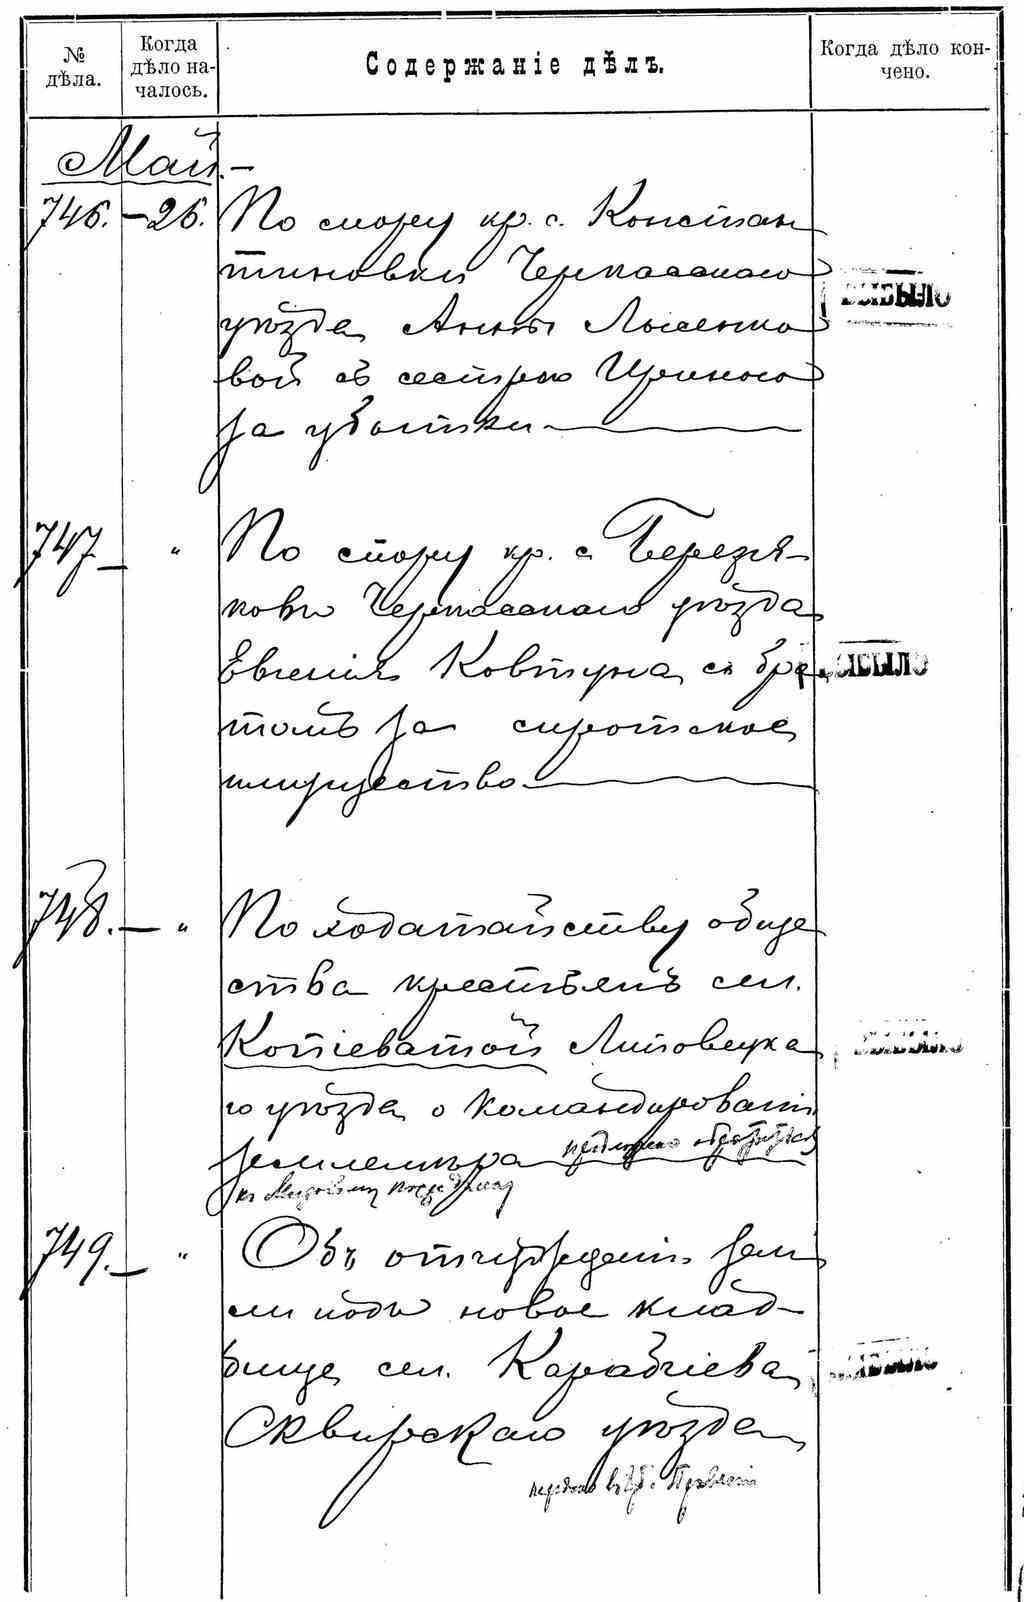 № дѣла.
Когда дѣло на-
чалось.
Содержаніе дѣлъ.
Когда дѣло кон-
чено.
Май.
746. – 26. По спору кр. с. Констан
тиновки Черкасскаго
уѣзда Анны Лысенко
вой съ сестрою Ириною
за убытки
ВЫБЫЛО
747 – " По спору кр. с. Березня-
ковъ Черкасскаго уѣзда
Евгенія Ковтуна съ бра
томъ за сиротское
имущество
ВЫБЫЛО
748. – " По ходатайству обще
ства крестьянъ сел.
Копіеватой Липовецка
го уѣзда о командированіи
землемѣра предложено обратиться
къ Мировому посреднику
ВЫБЫЛО
749. – " Объ отчужденіи зем
ли подъ новое клад-
бище сел. Карабчіева
Сквирскаго уѣзда
ВЫБЫЛО